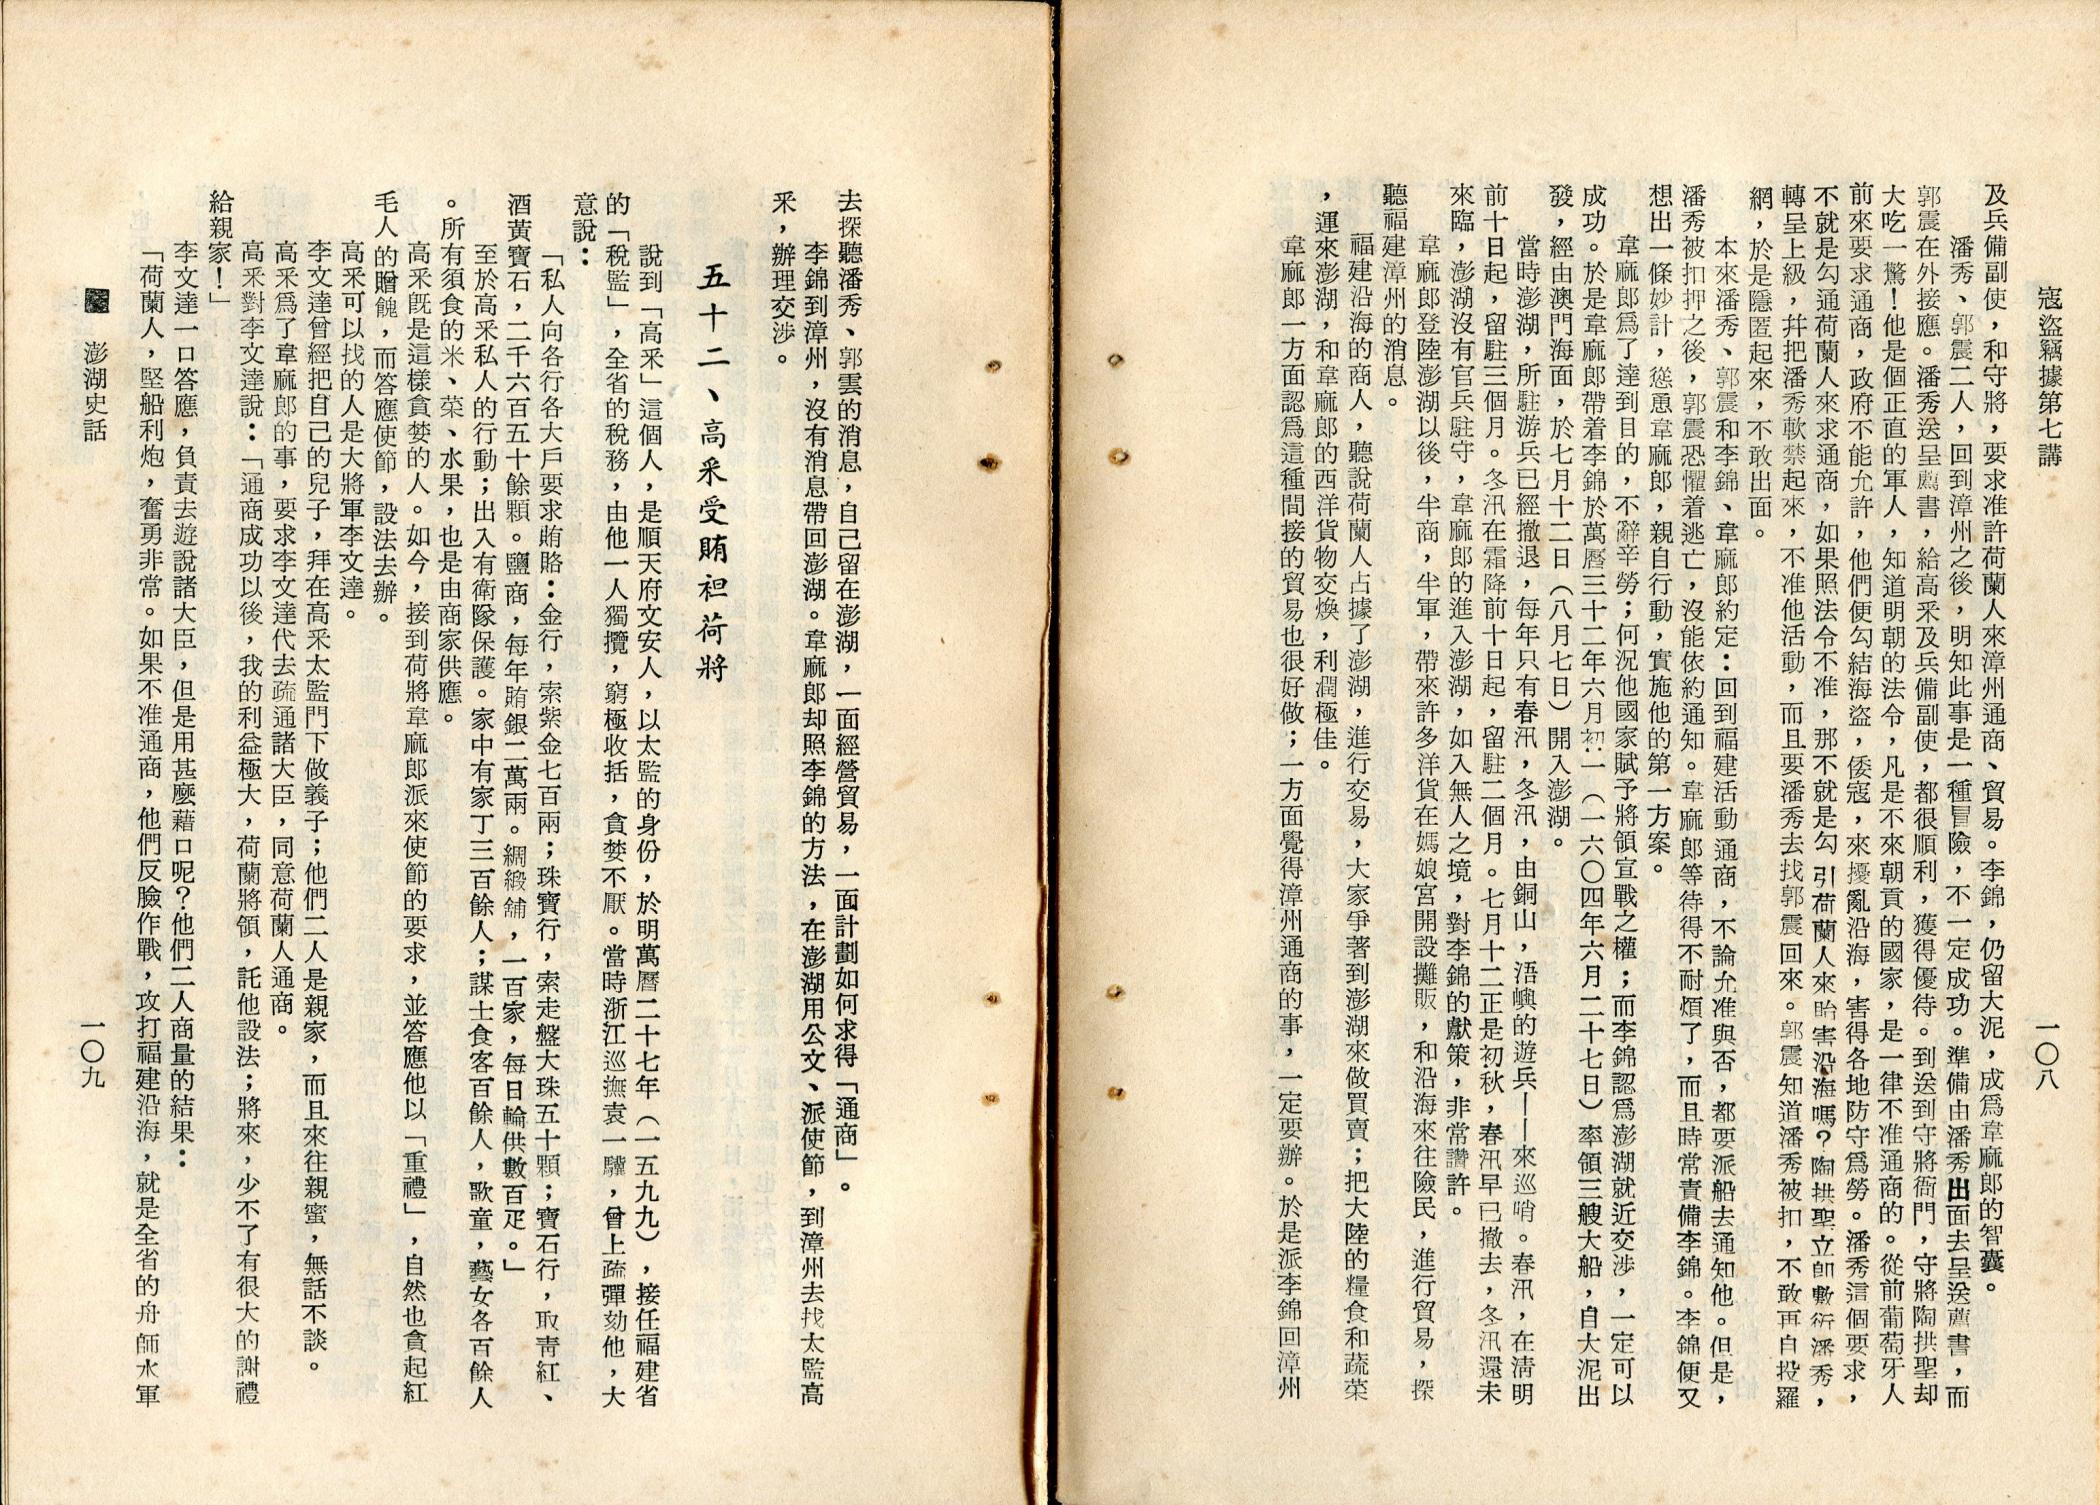 寇盜竊據第七講
一〇八
及兵備副使，和守將，要求准許荷蘭人來漳州通商、貿易。李錦，仍留大泥，成爲韋麻郎的智囊。
潘秀、郭震二人，回到漳州之後，明知此事是一種冒險，不一定成功。準備由潘秀出面去呈送薦書，而
郭震在外接應。潘秀送呈薦書，給高寀及兵備副使，都很順利，獲得優待。到送到守將衙門，守將陶拱聖却
大吃一驚！他是個正直的軍人，知道明朝的法令，凡是不來朝貢的國家，是一律不准通商的。從前葡萄牙人
前來要求通商，政府不能允許，他們便勾結海盜，倭寇，來擾亂沿海，害得各地防守爲勞。潘秀這個要求，
不就是勾通荷蘭人來求通商，如果照法令不准，那不就是勾引荷蘭人來貽害沿海嗎？陶拱聖立卽敷衍潘秀，
轉呈上級，幷把潘秀軟禁起來，不准他活動，而且要潘秀去找郭震回來。郭震知道潘秀被扣，不敢再自投羅
網，於是隱匿起來，不敢出面。
本來潘秀、郭震和李錦、韋麻郎約定：回到福建活動通商，不論允准與否，都要派船去通知他。但是，
潘秀被扣押之後，郭震恐懼着逃亡，沒能依約通知。韋麻郎等待得不耐煩了，而且時常責備李錦。李錦便又
想出一條妙計，慫恿韋麻郎，親自行動，實施他的第一方案。
韋麻郎爲了達到目的，不辭辛勞；何況他國家賦予將領宣戰之權；而李錦認爲澎湖就近交涉，一定可以
成功。於是韋麻郎帶着李錦於萬曆三十二年六月初一（一六〇四年六月二十七日）率領三艘大船，自大泥出
發，經由澳門海面，於七月十二日（八月七日）開入澎湖。
當時澎湖，所駐游兵已經撤退，每年只有春汛，冬汛，由銅山，浯嶼的遊兵——來巡哨。春汛，在清明
前十日起，留駐三個月。冬汛在霜降前十日起，留駐二個月。七月十二正是初秋，春汛早已撤去，冬汛還未
來臨，澎湖沒有官兵駐守，韋麻郎的進入澎湖，如入無人之境，對李錦的獻策，非常讚許。
韋麻郎登陸澎湖以後，半商，半軍，帶來許多洋貨在媽娘宮開設攤販，和沿海來往險民，進行貿易，探
聽福建漳州的消息。
福建沿海的商人，聽說荷蘭人占據了澎湖，進行交易，大家爭著到澎湖來做買賣；把大陸的糧食和蔬菜
，運來澎湖，和韋麻郎的西洋貨物交煥，利潤極佳。
韋麻郎一方面認爲這種間接的貿易也很好做；一方面覺得漳州通商的事，一定要辦。於是派李錦回漳州
去探聽潘秀、郭雲的消息，自己留在澎湖，一面經營貿易，一面計劃如何求得「通商」。
李錦到漳州，沒有消息帶回澎湖。韋麻郎却照李錦的方法，在澎湖用公文、派使節，到漳州去找太監高
寀，辦理交涉。
五十二、高寀受賄袒荷將
說到「高寀」這個人，是順天府文安人，以太監的身份，於明萬曆二十七年（一五九九），接任福建省
的「稅監」，全省的稅務，由他一人獨攬，窮極收括，貪婪不厭。當時浙江巡撫袁一驥，曾上疏彈劾他，大
意說：
「私人向各行各大戶要求賄賂：金行，索紫金七百兩；珠寶行，索走盤大珠五十顆；寶石行，取靑紅、
酒黃寶石，二千六百五十餘顆。鹽商，每年賄銀二萬兩。綢緞舖，一百家，每日輪供數百疋。」
至於高寀私人的行動；出入有衛隊保護。家中有家丁三百餘人；謀士食客百餘人，歌童，藝女各百餘人
。所有須食的米、菜、水果，也是由商家供應。
高寀旣是這樣貪婪的人。如今，接到荷將韋麻郎派來使節的要求，並答應他以「重禮」，自然也貪起紅
毛人的贈餽，而答應使節，設法去辦。
高寀可以找的人是大將軍李文達。
李文達曾經把自己的兒子，拜在高寀太監門下做義子；他們二人是親家，而且來往親蜜，無話不談。
高寀爲了韋麻郎的事，要求李文達代去疏通諸大臣，同意荷蘭人通商。
高寀對李文達說：「通商成功以後，我的利益極大，荷蘭將領，託他設法；將來，少不了有很大的謝禮
給親家！」
李文達一口答應，負責去遊說諸大臣，但是用甚麼藉口呢？他們二人商量的結果：
「荷蘭人，堅船利炮，奮勇非常。如果不准通商，他們反臉作戰，攻打福建沿海，就是全省的舟師水軍
澎湖史話
一〇九